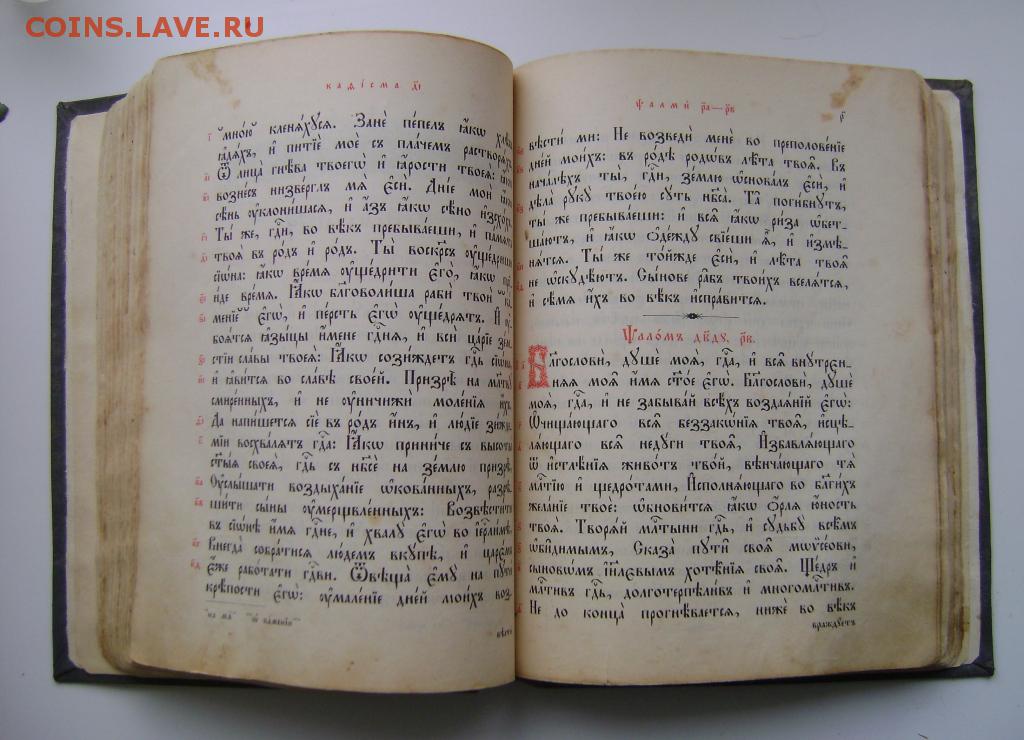 COINS.LAVE.RU
каѳі́сма
мно́ю кленѧ́хꙋсѧ. Занѐ пе́пелъ ꙗ҆́кѡ хлѣ́бъ
ꙗ҆дѧ́хъ, и҆ питїѐ моѐ съ пла́чемъ растворѧ́хъ.
Ѿ лица̀ гнѣ́ва твоегѡ̀ и҆ ꙗ҆́рости твоеѧ̀: ꙗ҆́кѡ
возне́съ низве́рглъ мѧ̀ є҆сѝ. Дні́е моѝ ꙗ҆́кѡ
сѣ́нь ᲂу҆клони́шасѧ, и҆ а҆́зъ ꙗ҆́кѡ сѣ́но и҆зсхо́хъ.
Ты́ же, гдⷭ҇и, во вѣ́къ пребыва́еши, и҆ па́мѧть
твоѧ̀ въ ро́дъ и҆ ро́дъ. Ты̀ воскрⷭ҇ъ ᲂу҆ще́дриши
сїѡ́на: ꙗ҆́кѡ вре́мѧ ᲂу҆ще́дрити є҆го̀, ꙗ҆́кѡ прі-
и́де вре́мѧ. Ꙗ҆́кѡ бл҃говоли́ша рабѝ твоѝ ка́-
менїе є҆гѡ̀, и҆ пе́рсть є҆гѡ̀ ᲂу҆ще́дрѧтъ. И҆ ᲂу҆-
боѧ́тсѧ ꙗ҆зы́цы и҆́мене гдⷭ҇нѧ, и҆ всѝ ца́рїе зем-
сті́и сла́вы твоеѧ̀: Ꙗ҆́кѡ сози́ждетъ гдⷭ҇ь сїѡ́на
и҆ ꙗ҆ви́тсѧ во сла́вѣ свое́й. Призрѣ̀ на мл҃твꙋ
смире́нныхъ, и҆ не ᲂу҆ничижѝ моле́нїѧ и҆́хъ.
Да напи́шетсѧ сїѐ въ ро́дъ и҆́нъ, и҆ лю́дїе зи́жде-
мїи восхва́лѧтъ гдⷭ҇а: Ꙗ҆́кѡ прини́че съ высоты̀
ст҃ы́ѧ своеѧ̀, гдⷭ҇ь съ нб҃сѐ на зе́млю призрѣ̀,
Оу҆слы́шати воздыха́нїе ѡ҆кова́нныхъ, разрѣ-
ши́ти сы́ны ᲂу҆мерщвле́нныхъ: Возвѣсти́ти
въ сїѡ́нѣ и҆́мѧ гдⷭ҇не, и҆ хвалꙋ̀ є҆гѡ̀ во і҆ерⷭ҇ли́мѣ,
Внегда̀ собра́тисѧ лю́демъ вкꙋ́пѣ, и҆ царє́мъ
є҆́же рабо́тати гдⷭ҇ви. Ѿвѣща̀ є҆мꙋ̀ на пꙋтѝ
крѣ́пости є҆гѡ̀: ᲂу҆мале́нїе дне́й мои́хъ воз-
ѱалмѝ р҃а—р҃в
вѣстѝ мѝ: Не возведѝ менѐ во преполове́нїе
дне́й мои́хъ: въ ро́дѣ родѡ́въ лѣ̑та твоѧ̑. Въ
нача́лѣхъ ты̀, гдⷭ҇и, зе́млю ѡ҆снова́лъ є҆сѝ, и҆
дѣла̀ рꙋкꙋ̀ твоє́ю сꙋ́ть нб҃са̀. Та̑ поги́бнꙋтъ,
ты́ же пребыва́еши: и҆ всѧ̑ ꙗ҆́кѡ ри́за ѡ҆бет-
ша́ютъ, и҆ ꙗ҆́кѡ ѻ҆де́ждꙋ свїе́ши ѧ҆̀, и҆ и҆змѣ-
нѧ́тсѧ. Ты́ же то́йжде є҆сѝ, и҆ лѣ̑та твоѧ̑
не ѡ҆скꙋдѣ́ютъ. Сы́нове ра̑бъ твои́хъ вселѧ́тсѧ,
и҆ сѣ́мѧ и҆́хъ во вѣ́къ и҆спра́витсѧ.
Ѱало́мъ дв҃дꙋ, р҃в.
Бл҃гословѝ, дꙋшѐ моѧ̀, гдⷭ҇а, и҆ всѧ̑ внꙋ́трен-
нѧѧ моѧ̑ и҆́мѧ ст҃о́е є҆гѡ̀. Бл҃гословѝ, дꙋшѐ
моѧ̀, гдⷭ҇а, и҆ не забыва́й всѣ́хъ воздаѧ́нїй є҆гѡ̀:
Ѡ҆чища́ющаго всѧ̑ беззакѡ́нїѧ твоѧ̑, и҆сцѣ-
лѧ́ющаго всѧ̑ недꙋ́ги твоѧ̑, И҆збавлѧ́ющаго
ѿ и҆стлѣ́нїѧ живо́тъ тво́й, вѣнча́ющаго тѧ̀
млⷭ҇тїю и҆ щедро́тами, И҆сполнѧ́ющаго во бл҃ги́хъ
жела́нїе твоѐ: ѡ҆бнови́тсѧ ꙗ҆́кѡ ѻ҆́рлѧ ю҆́ность
твоѧ̀. Творѧ́й млⷭ҇тыни гдⷭ҇ь, и҆ сꙋдьбꙋ̀ всѣ̑мъ
ѡ҆би̑димымъ, Сказа̀ пꙋти̑ своѧ̑ мѡѷсе́ови,
сыновѡ́мъ і҆и҃лєвымъ хотѣ̑нїѧ своѧ̑. Ще́дръ и҆
млⷭ҇тивъ гдⷭ҇ь, долготерпѣли́въ и҆ многомлⷭ҇тивъ.
Не до конца̀ прогнѣ́вается, нижѐ во вѣ́къ
враждꙋ́етъ